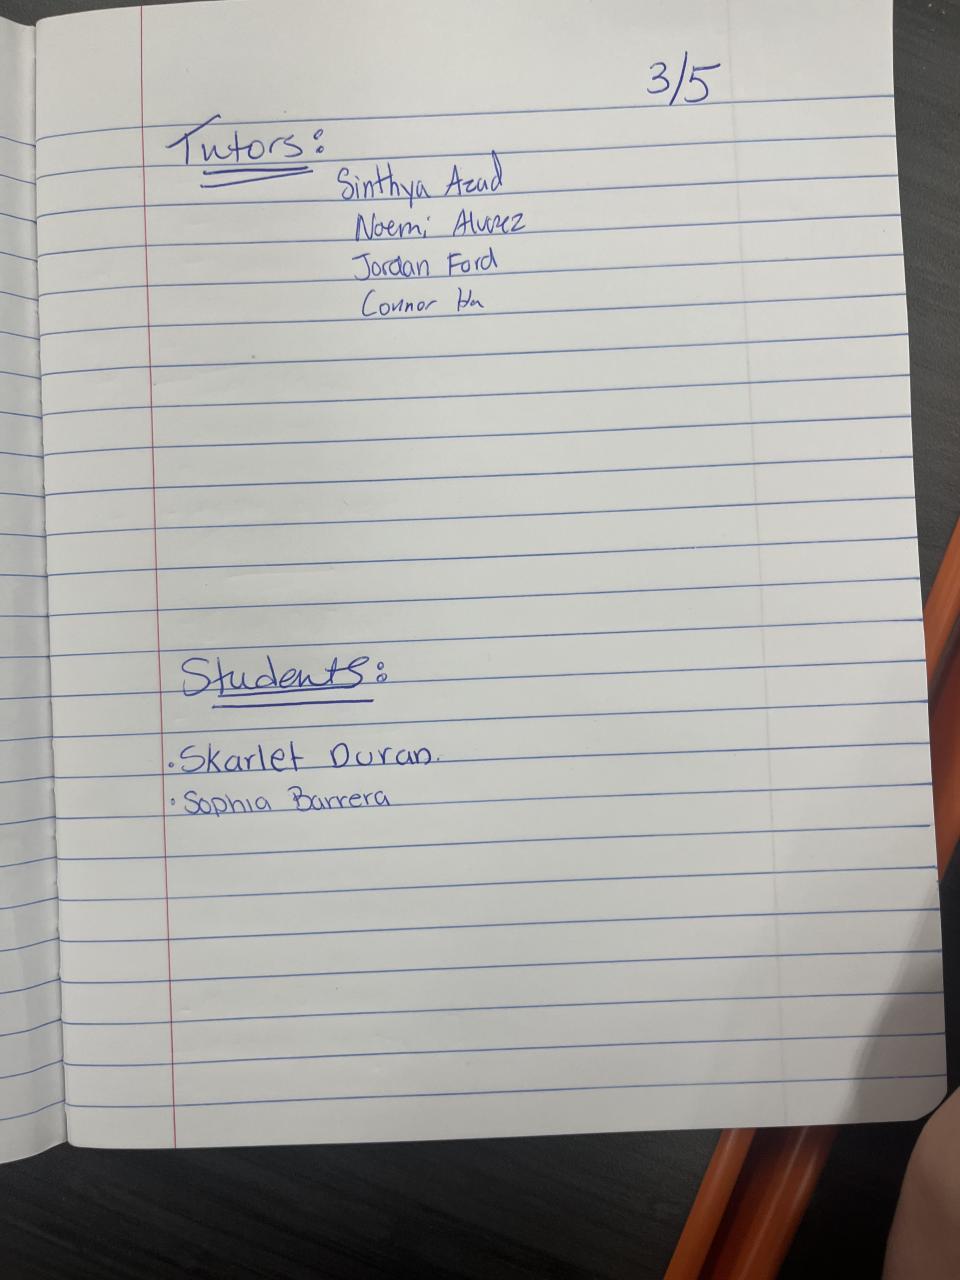 3/5
Tutors:
Sinthya Azad
Noemi
Jordan Ford
Connor
Students:
• Skarlet Duran.
• Sophia Barrera